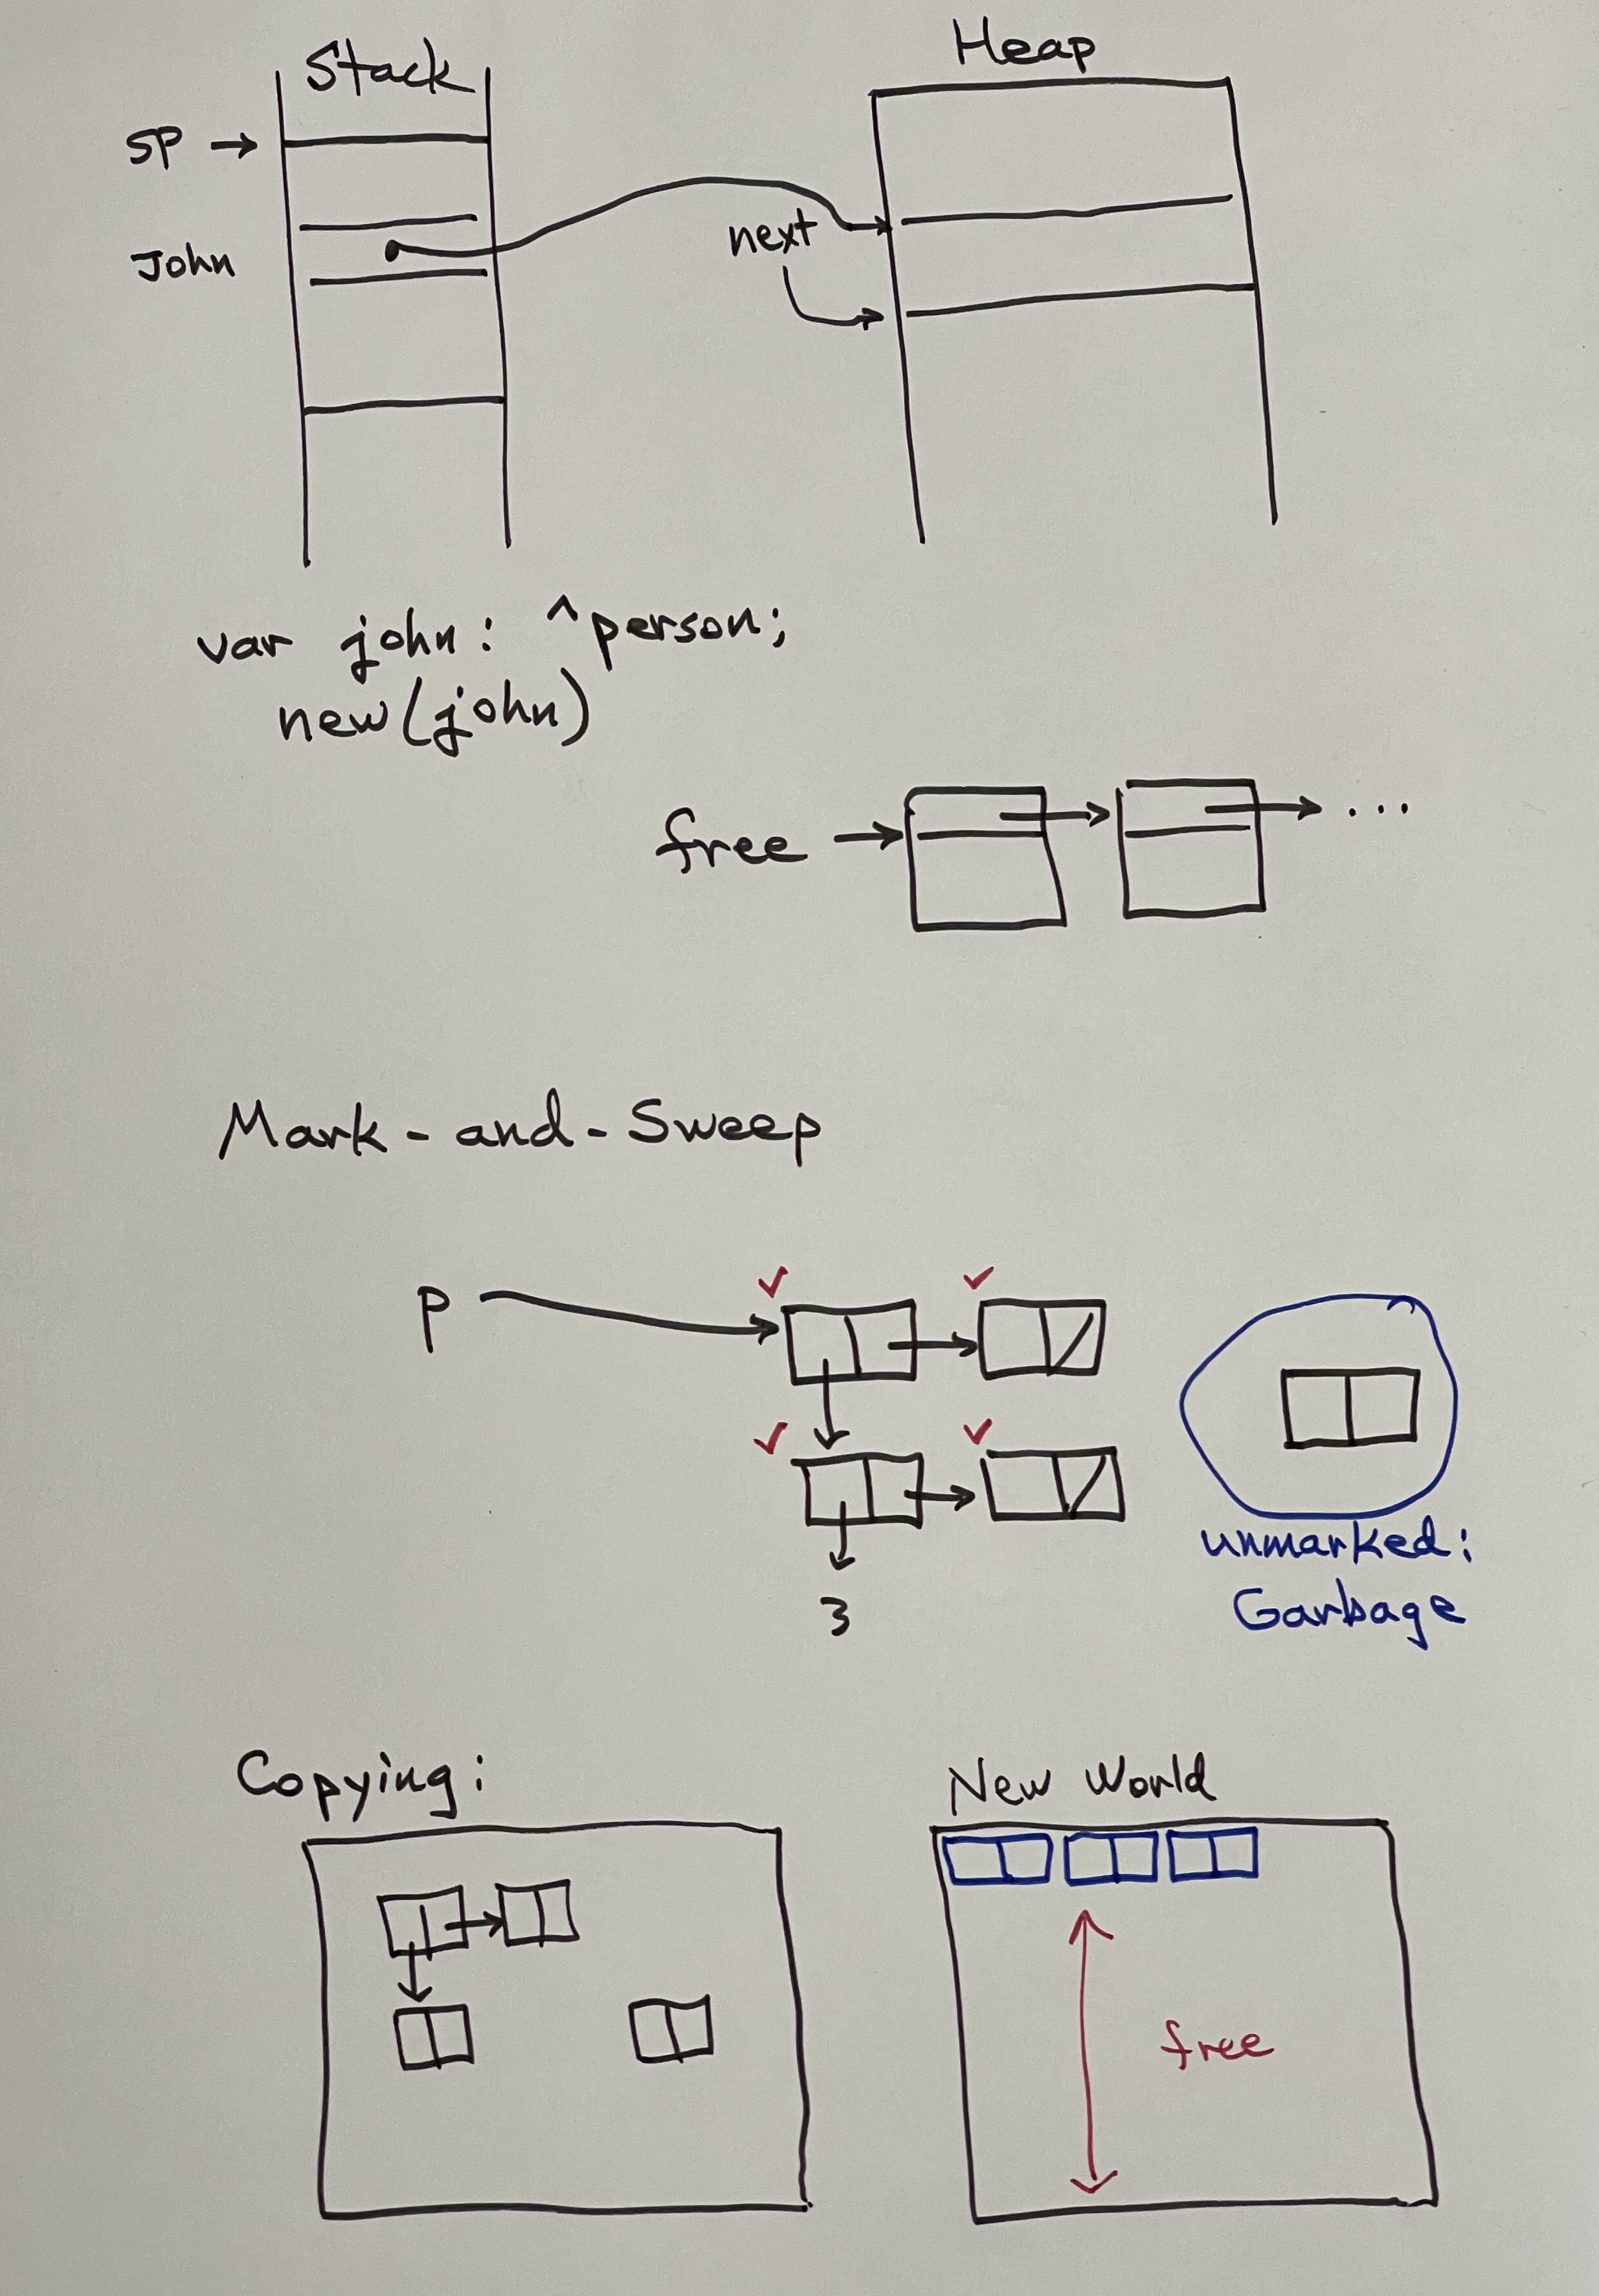 Stack
Heap
SP →
next
John
var john: ^person;
new(john)
free → ...
Mark-and-Sweep
P
3
unmarked:
Garbage
Copying:
New World
free